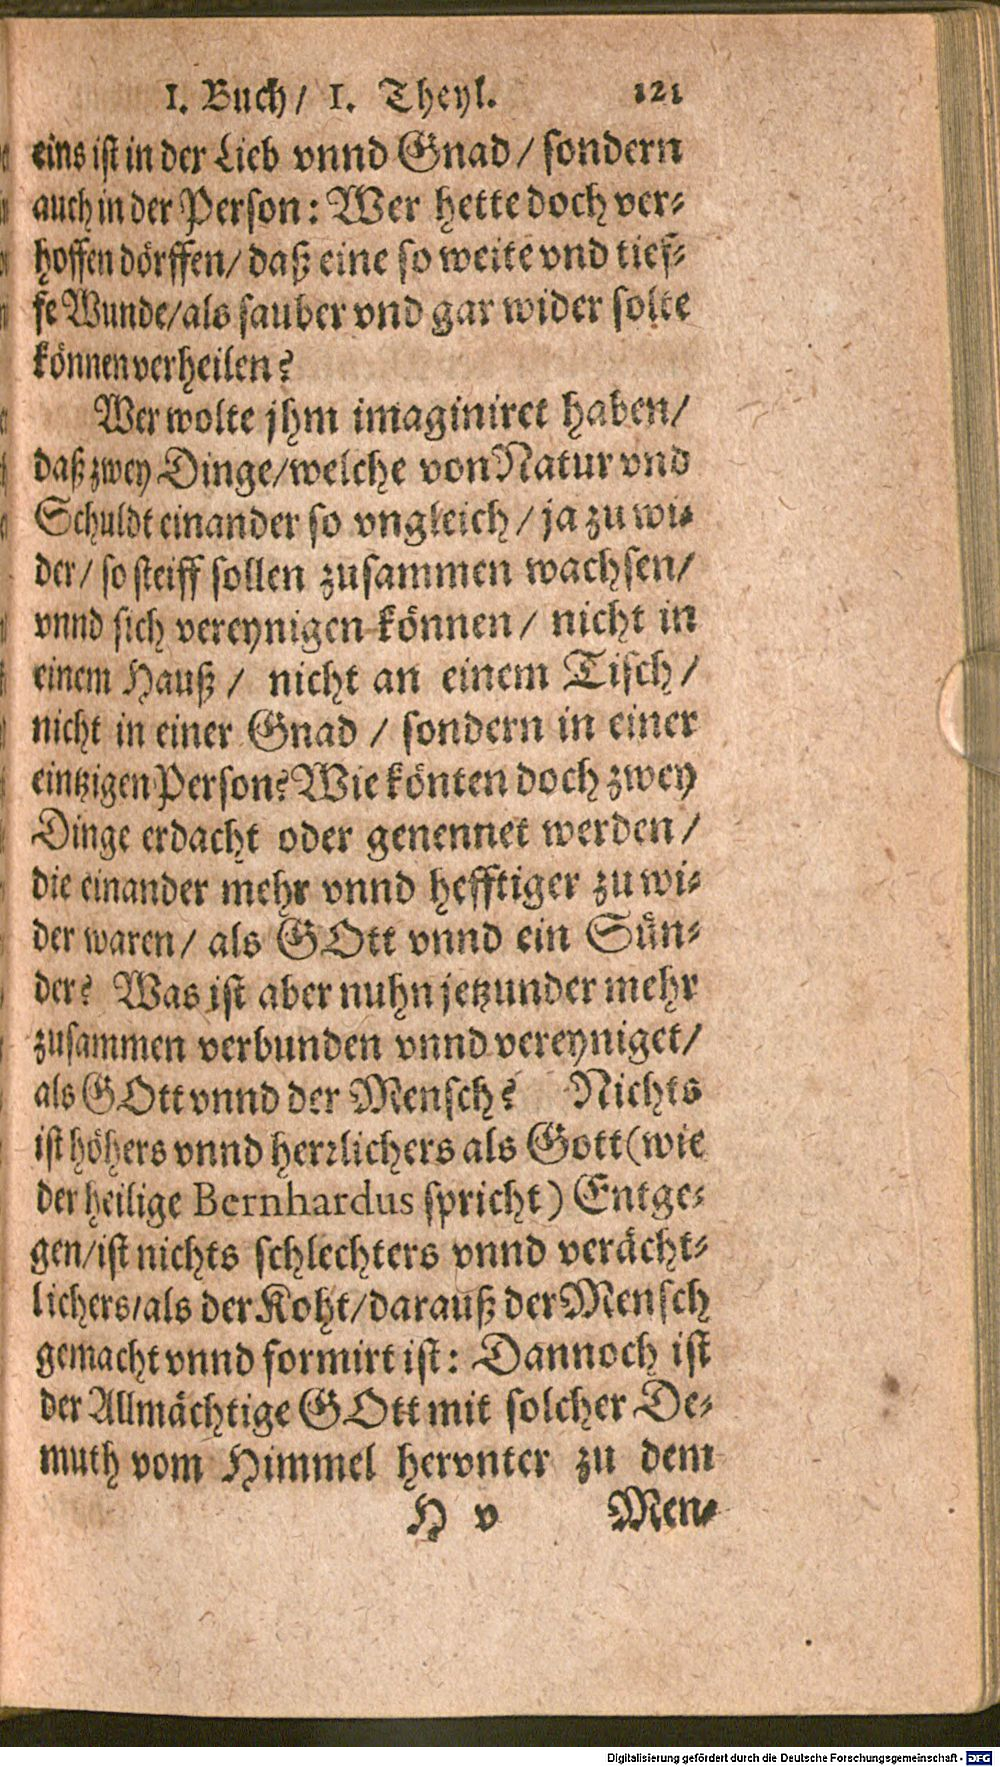 1. Buch/ 1. Theyl. 121
eins ist in der Lieb vnnd Gnad/ sondern
auch in der Person: Wer hette doch ver-
hoffen dörffen/ daß eine so weite vnd tief-
fe Wunde/ als sauber vnd gar wider solte
können verheilen?
Wer wolte jhm imaginiret haben/
daß zwey Dinge/ welche von Natur vnd
Schuldt einander so vngleich/ ja zu wi-
der/ so steiff sollen zusammen wachsen/
vnnd sich vereynigen können/ nicht in
einem Hauß/ nicht an einem Tisch/
nicht in einer Gnad/ sondern in einer
eintzigen Person? Wie könten doch zwey
Dinge erdacht oder genennet werden/
die einander mehr vnnd hefftiger zu wi-
der waren/ als GOtt vnnd ein Sün-
der? Was ist aber nuhn jetzunder mehr
zusammen verbunden vnnd vereyniget/
als GOtt vnnd der Mensch? Nichts
ist höhers vnnd herꝛlichers als Gott (wie
der heilige Bernhardus spricht) Entge-
gen/ ist nichts schlechters vnnd verächt-
lichers/ als der Koht/ darauß der Mensch
gemacht vnnd formirt ist: Dannoch ist
der Allmächtige GOtt mit solcher De-
muth vom Himmel hervnter zu dem
H v Men-
Digitalisierung gefördert durch die Deutsche Forschungsgemeinschaft - DFG